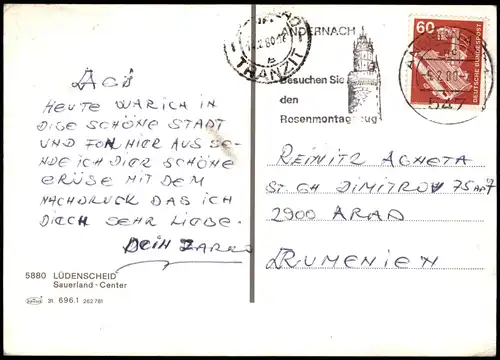 HEUTE WAR ICH IN
DISE SCHÖNE STADT
UND FON HIER AUS SE-
NDE ICH DIER SCHÖNE
GRÜSE MIT DEM
NACHDRUCK DAS ICH
DICH SEHR LIEBE.
DEIN
5880 LÜDENSCHEID
Sauerland - Center
31. 696.1 262 781
TRANZIT
ANDERNACH
Besuchen Sie
den
Rosenmontagszug
547
60
DEUTSCHE BUNDESPOST
REINITZ AGNETA
ST. GH DIMITROV 75 AP 7
2900 ARAD
RUMENIEN